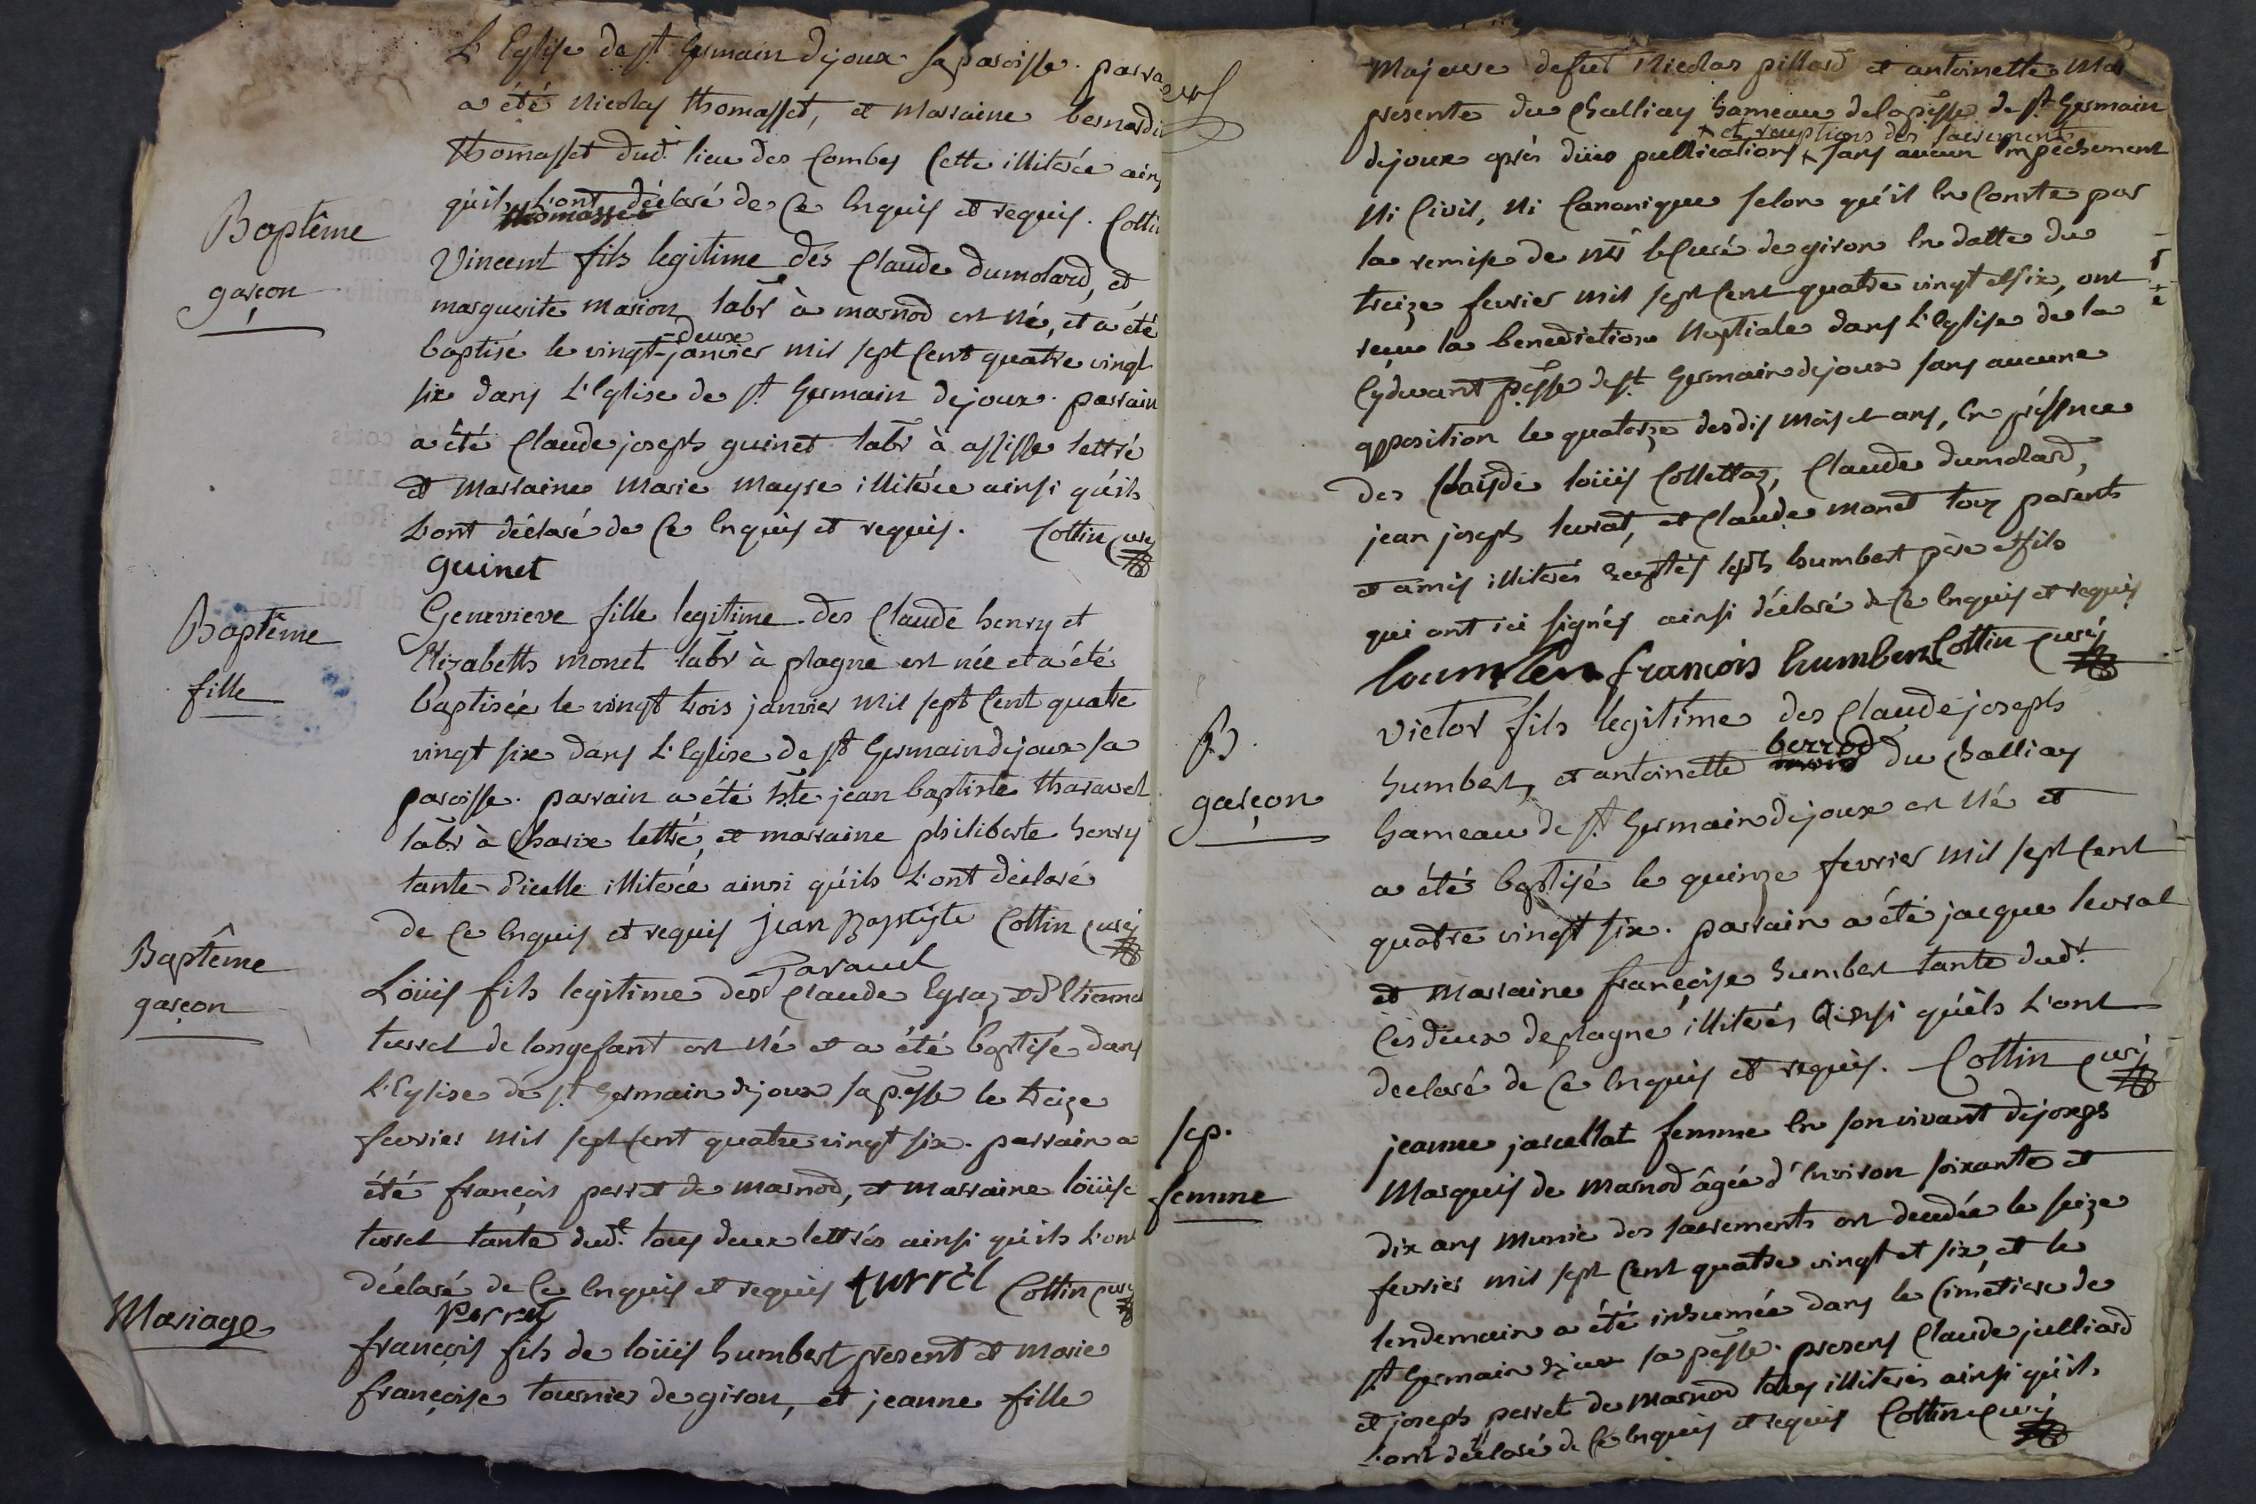 L'Eglise de st. Germain dejoux sa paroisse. parra
a été Nicolas thomasset, et Marraine bernardi
thomasset dud. lieu des Combes Cette illiterée ains
qu'ils L'ont déclaré de Ce Enquis et requis. Cottin
thomasset
Baptême
garçon
Vincent fils legitime des Claude dumolard, et
marguerite marion labr à marnod est né, et a été
baptisé le vingt-deux janvier mil sept Cent quatre vingt
six dans L'Eglise de st. Germain dejoux. parrain
a êté Claude joseph guinet labr à assisse lettré
et Marraine Marie mayse illiterée ainsi qu'ils
L'ont déclaré de Ce Enquis et requis. Cottin Curé
guinet
Baptême
fille
Genevieve fille legitime des Claude henry et
Elizabeth monet labr à plagne est née et a été
baptisée le vingt trois janvier mil sept Cent quatre
vingt six dans L'Eglise de st. Germain dejoux sa
paroisse. parrain a été hte jean baptiste tharavel
labr à Charix lettré, et marraine philiberte henry
tante d'icelle illiterée ainsi qu'ils L'ont déclaré
de Ce Enquis et requis Jean Baptiste Cottin Curé
Taravel
Baptême
garçon
Loüis fils legitime des Claude Egraz et d'Etienne
turrel de longefant est Né et a été baptisé dans
L'Eglise de st. Germain dejoux sa psse le treize
fevrier mil sept Cent quatre vingt six. parrain a
été françois perret de marnod, et marraine loüise
turrel tante dud. tous deux lettrés ainsi qu'ils L'ont
déclaré de Ce Enquis et requis turrel Cottin Curé
Perret
Mariage
françois fils de loüis humbert present et Marie
françoise tournier de giron, et jeanne fille
Majeure defut Nicolas pillard et antoinette Mor
presente du Challiay hameau de la psse de st. Germain
dejoux après dües publications + sans aucun Empechement
+ et receptions des sacrements
Ni Civil, Ni Canonique selon qu'il En Conste par
la remise de Mr le Curé de giron En datte du
treize fevrier mil sept Cent quatre vingt et six, ont
reçu la benediction Nuptiale dans L'Eglise de la
Cydevant psse de st. Germain dejoux sans aucune
opposition le quatorze desdis mois et ans, En présence
des Claude loüis Collettaz, Claude dumolard,
jean joseph levrat, et Claude monet tous parents
et amis illiterés humbert père et fils
qui ont ici signés ainsi déclaré de Ce Enquis et requis
humbert françois humbert Cottin Curé
B.
garçon
Victor fils legitime des Claude joseph
humbert, et antoinette berrod du Challiay
hameau de st. Germain dejoux est Né et
a étés baptisé le quinze fevrier mil sept Cent
quatre vingt six. parrain a été jacque levrat
et Marraine françoise humbert tante dud.
Ces deux de plagne illiterés ainsi qu'ils L'ont
declaré de Ce Enquis et requis. Cottin Curé
sep.
femme
jeanne jarcellat femme En son vivant de joseph
Marquis de Marnod âgée d'Environ soixante et
dix ans munie des sacrements est decedée le seize
fevrier mil sept Cent quatre vingt et six, et le
lendemain a été inhumée dans le Cimétiere de
st. Germain dejoux sa psse. presens Claude julliard
et joseph perret de Marnod tous illiterés ainsi qu'ils
L'ont déclaré de Ce Enquis et requis Cottin Curé